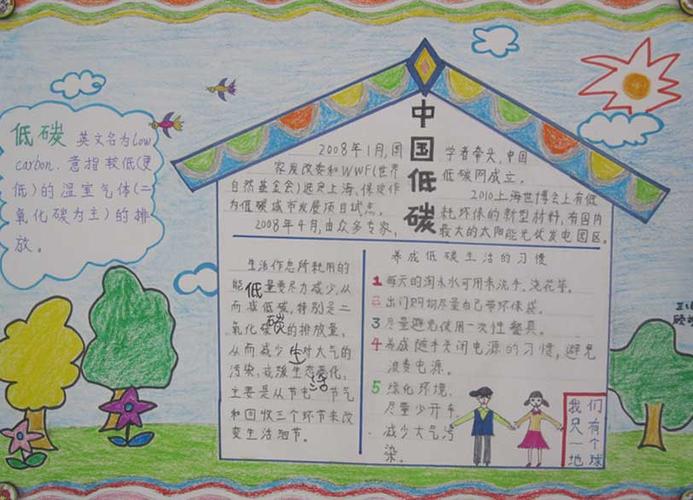 低碳 英文名为low
carbon.意指较低(更
低)的温室气体(二
氧化碳为主)的排
放。
中国低碳
2008年1月,国
家发改委和WWF(世界
自然基金会)选定上海、保定作
为低碳城市发展项目试点。
2008年4月,由众多专家,
学者牵头,中国
低碳网成立。
2010上海世博会上有低
耗环保的新型材料,有国内
最大的太阳能光伏发电园区。
生活作息所耗用的
能量要尽力减少,从
而减低碳,特别是二
氧化碳的排放量,
从而减少对大气的
污染,减缓生态恶化,
主要是从节电 节气
和回收三个环节来改
变生活细节。
低碳生活
养成低碳生活的习惯
1 每天的淘米水可用来洗手、浇花等。
2 出门购物尽量自己带环保袋。
3 尽量避免使用一次性餐具。
4 养成随手关闭电源的习惯,避免
浪费电源。
5 绿化环境,
尽量少开车
减少大气污
染。
我们
只有
一个
地球